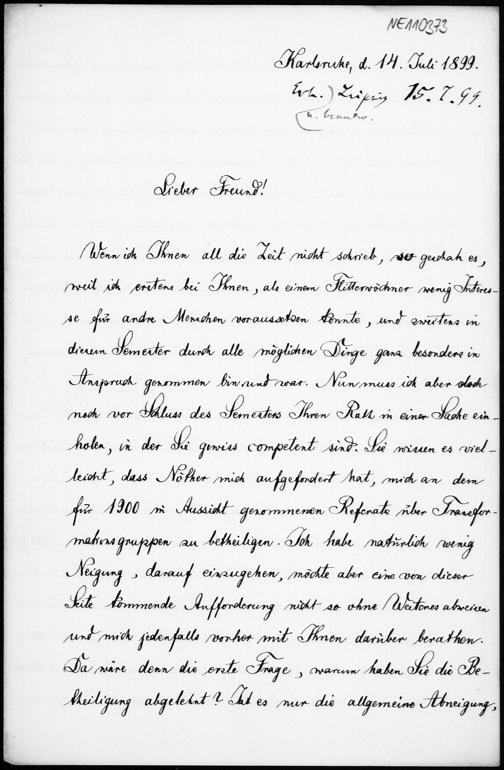 NE110373
Karlsruhe, d. 14. Juli 1899.
Erh. Leipzig 15.7.99.
u. beantw.
Lieber Freund!
Wenn ich Ihnen all die Zeit nicht schrieb, so geschah es,
weil ich erstens bei Ihnen, als einem Flitterwöchner wenig Interes-
se für andre Menschen voraussetzen konnte, und zweitens in
diesem Semester durch alle möglichen Dinge ganz besonders in
Anspruch genommen bin und war. Nun muss ich aber doch
noch vor Schluss des Semesters Ihren Rath in einer Sache ein-
holen, in der Sie gewiss competent sind. Sie wissen es viel-
leicht, dass Nöther mich aufgefordert hat, mich an dem
für 1900 in Aussicht genommenen Referate über Transfor-
mationsgruppen zu betheiligen. Ich habe natürlich wenig
Neigung, darauf einzugehen, möchte aber eine von dieser
Seite kommende Aufforderung nicht so ohne Weiteres abweisen
und mich jedenfalls vorher mit Ihnen darüber berathen.
Da wäre denn die erste Frage, warum haben Sie die Be-
theiligung abgelehnt? Ist es nur die allgemeine Abneigung,